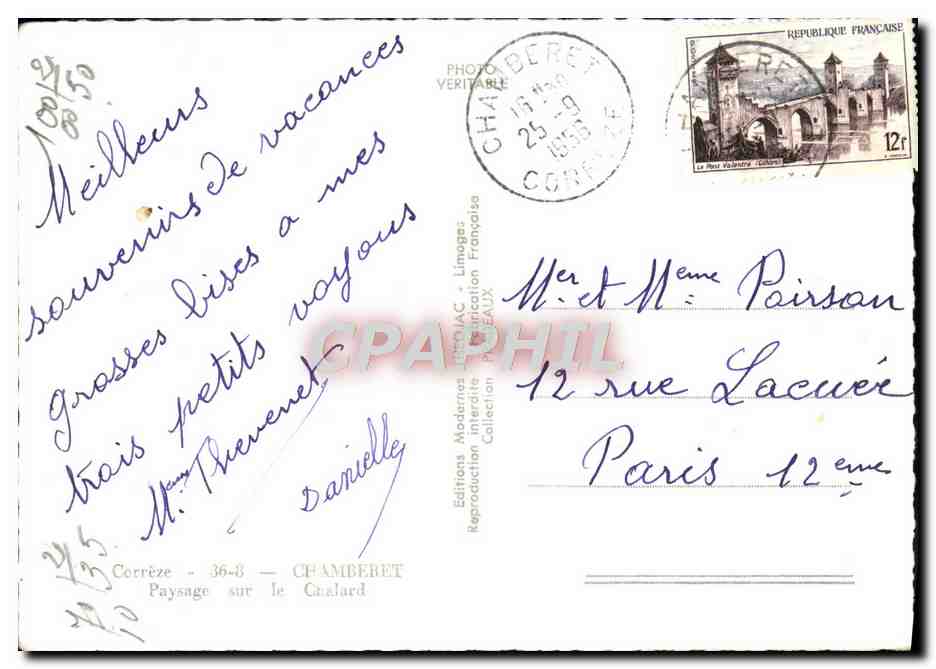 Meilleurs
souvenirs de vacances
grosses bises a mes
trois petits voyous
Mme Thevenet
Danielle
Corrèze - 36-8 — CHAMBERET
Paysage sur le Chalard
PHOTO
VERITABLE
Editions Modernes - Limoges
Reproduction interdite Fabrication Française
Collection
CHAMBERET
16 H
25-9
1956
CORREZE
REPUBLIQUE FRANÇAISE
POSTES
Le Pont Valentré (Cahors)
12f
CPAPHIL
Mer et Meme Poirson
12 rue Lacuée
Paris 12eme